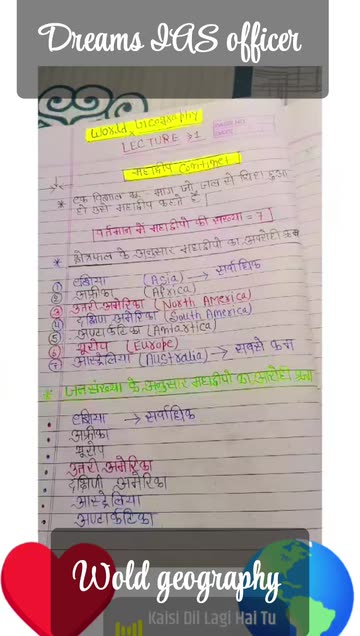 Dreams IAS officer
World Geography
LECTURE → 1
महाद्वीप Continet
* एक विशाल भू-भाग जो जल से घिरा हुआ
हो उसे महाद्वीप कहते हैं
वर्तमान में महाद्वीपों की संख्या = 7
* क्षेत्रफल के अनुसार महाद्वीपों का अवरोही क्रम
① एशिया (Asia) → सर्वाधिक
② अफ्रीका (Africa)
③ उतरी अमेरिका (North America)
④ दक्षिण अमेरिका (South America)
⑤ अण्टार्कटिका (Antartica)
⑥ यूरोप (Europe)
⑦ आस्ट्रेलिया (Australia) → सबसे कम
* जनसंख्या के अनुसार महाद्वीपों का अवरोही क्रम
एशिया → सर्वाधिक
अफ्रीका
यूरोप
उतरी अमेरिका
दक्षिणी अमेरिका
आस्ट्रेलिया
अण्टार्कटिका
Wold geography
Kaisi Dil Lagi Hai Tu